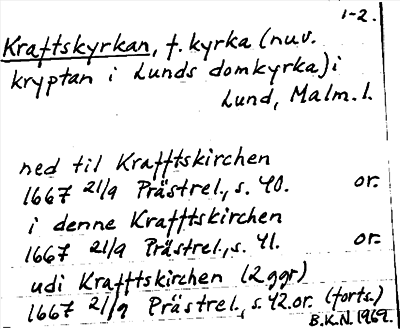 1-2.
Kraftskyrkan, f. kyrka (nuv.
kryptan i Lunds domkyrka) i
Lund, Malm. l.
ned til Krafftskirchen
1667 21/9 Prästrel., s. 40. or.
i denne Krafftskirchen
1667 21/9 Prästrel., s. 41. or.
udi Krafftskirchen (2 ggr)
1667 21/9 Prästrel., s. 42. or. (forts.)
B.K.N. 1969.